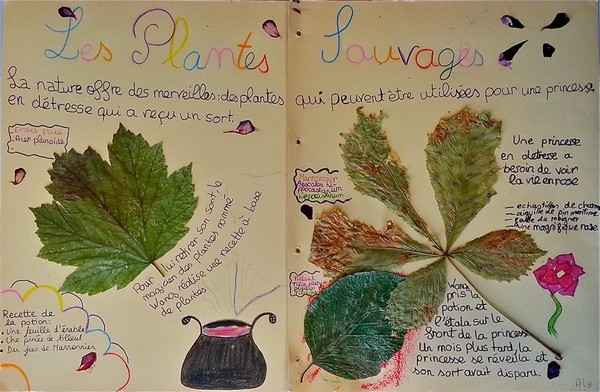 Les Plantes Sauvages
La nature offre des merveilles : des plantes qui peuvent être utilisées pour une princesse
en détresse qui a reçu un sort.
Erable plane
Acer planoïde
Pour lui retirer son sort, le
magicien des plantes nommé
Wang réalise une recette à base
de plantes
Recette de
la potion:
• Une feuille d'érable
• Une pincée de tilleul
• Du jus de Marronnier
Marronnier
Une princesse
en détresse a
besoin de voir
la vie en rose
— echantillon de charme
— aiguille de pin maritime
— gousse de robinier
— une magnifique rose
Tilleul
Wang
pris la
potion et
l'étala sur le
front de la princesse
Un mois plus tard, la
princesse se réveilla et
son sort avait disparu.
Alix